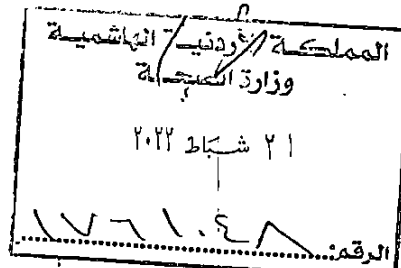 المملكة الأردنية الهاشمية
وزارة الصحة
٢١ شباط ٢٠٢٢
الرقم: ١٧٦١٠٤٨